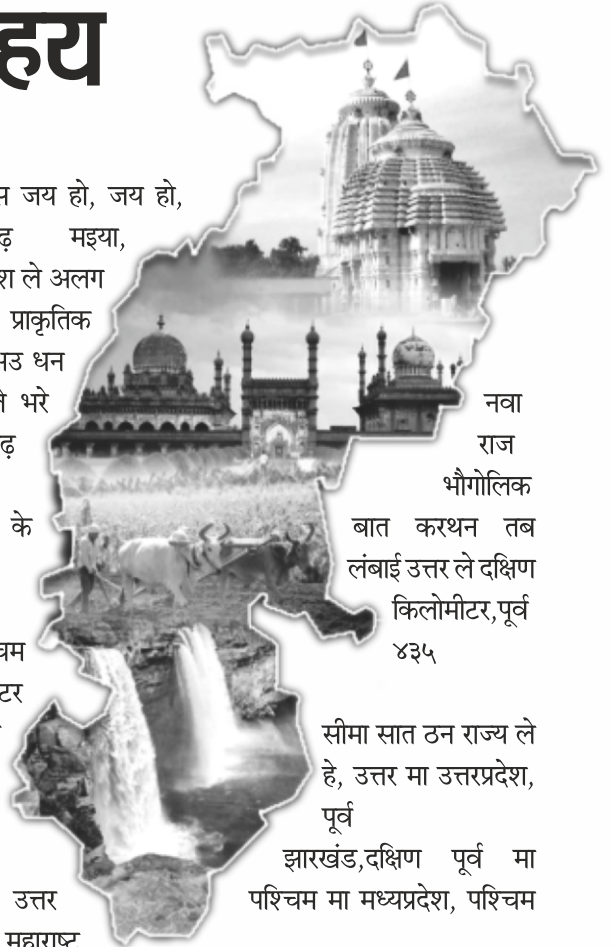 हय
स जय हो, जय हो,
ढ़ मइया,
श ले अलग
प्राकृतिक
उ धन
भरे
ढ़
के
टर
उत्तर
महाराष्ट
नवा
राज
भौगोलिक
बात करथन तब
लंबाई उत्तर ले दक्षिण
किलोमीटर,पूर्व
४३५
सीमा सात ठन राज्य ले
हे, उत्तर मा उत्तरप्रदेश,
पूर्व
झारखंड,दक्षिण पूर्व मा
पश्चिम मा मध्यप्रदेश, पश्चिम